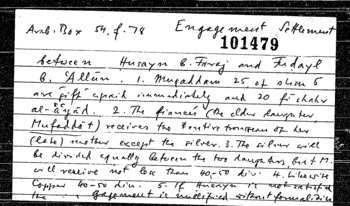 Arab. Box 54, f. 78 Engagement Settlement
101479
between Husayn b. Faraj and Fudayl
b. 'Allūn. 1. Muqaddam 25, of whom 5
are gift paid immediately and 20 fī shahr
al-a'yād. 2. The fiancée (the elder daughter
Mufaddāt) receives the entire trousseau of her
(late) mother except the silver. 3. The silver will
be divided equally between the two daughters, but M.
will receive not less than 40-50 din. 4. Likewise
Copper 40-50 din. 5. If Husayn is not satisfied
the engagement is nullified without formalities